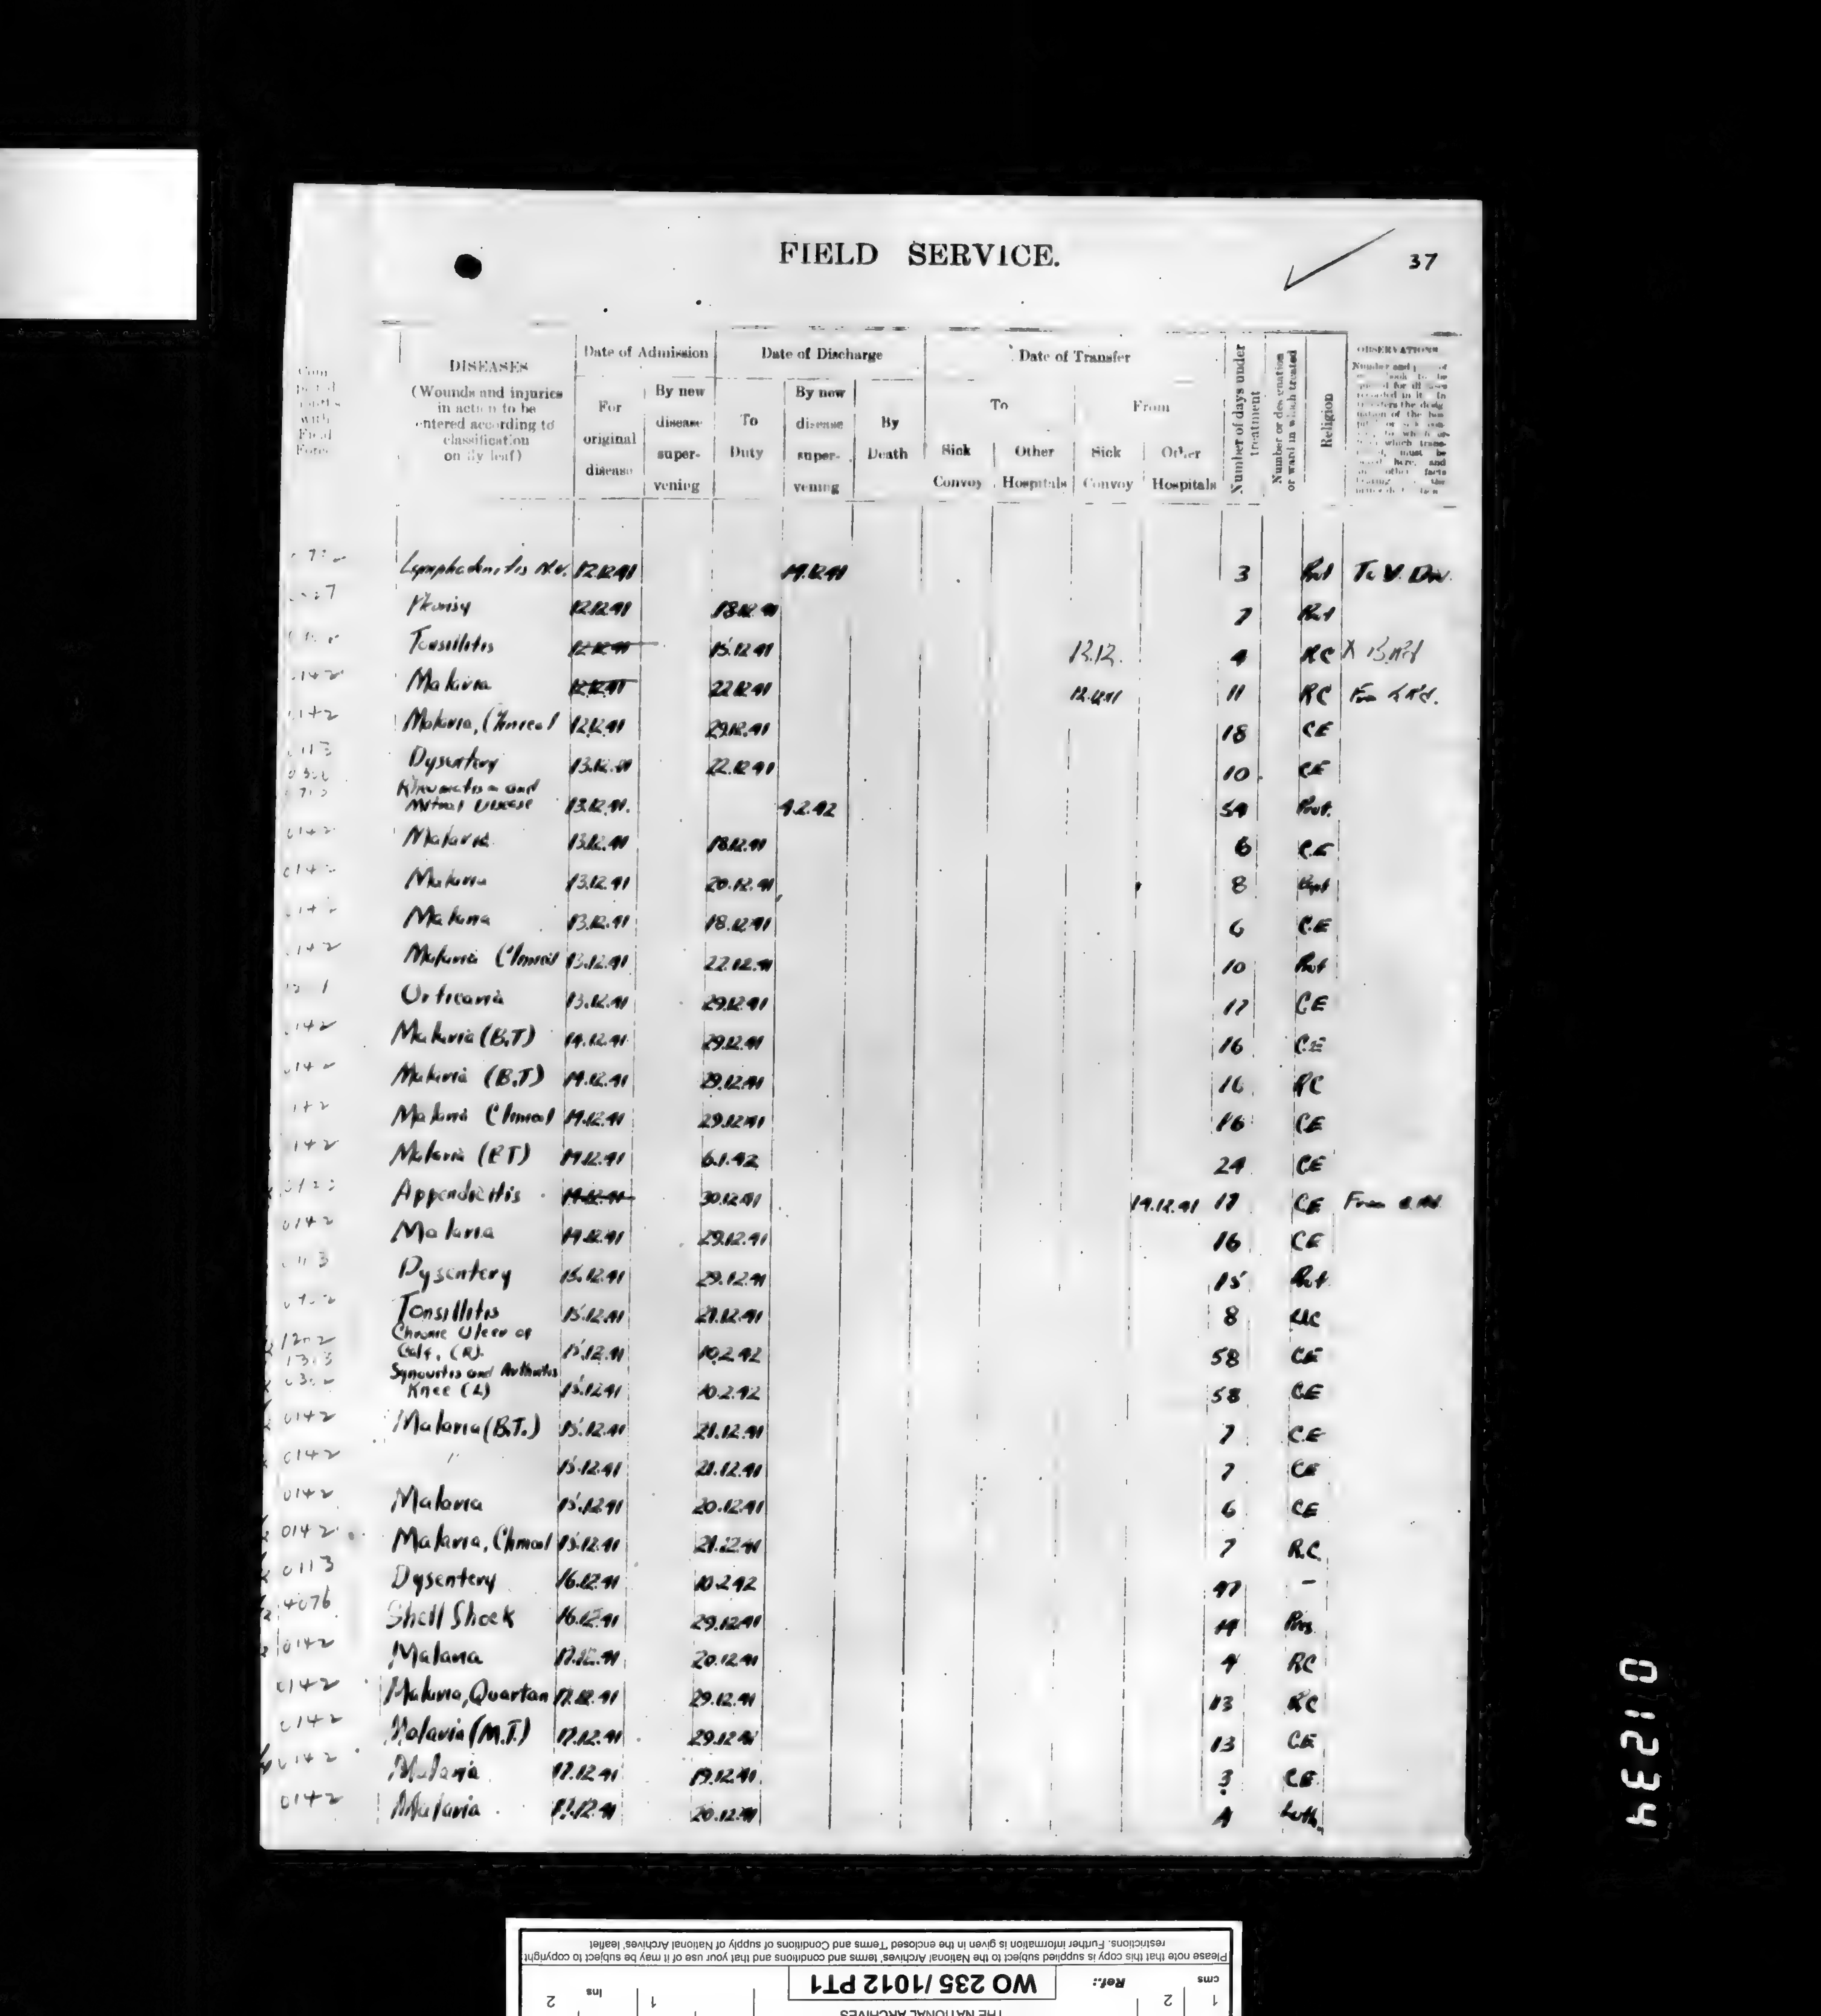 FIELD SERVICE.
37
DISEASES
(Wounds and injuries
in action to be
entered according to
classification
on fly leaf)
Date of Admission
For
original
disease
By new
disease
super-
vening
Date of Discharge
To
Duty
By new
disease
super-
vening
By
Death
Date of Transfer
To
From
Sick
Convoy
Other
Hospitals
Sick
Convoy
Other
Hospitals
Number of days under
treatment
Number or designation
or ward in which treated
Religion
OBSERVATIONS
Lymphadenitis N.V. 12.12.41 14.12.41 3 Prot To V. Div.
12.12.41 18.12.41 7 Prot
Tonsillitis 12.12.41 15.12.41 12.12. 4 RC X
0142 Malaria 12.12.41 22.12.41 12.12.41 11 RC
0142 Malaria, Clinical 12.12.41 29.12.41 18 CE
0113 Dysentery 13.12.41 22.12.41 10 CE
Rheumatism and
Mitral Disease 13.12.41. 4.2.42 54 Prot.
0142 Malaria 13.12.41 18.12.41 6 C.E
0142 Malaria 13.12.41 20.12.41 8 Bapt
0142 Malaria 13.12.41 18.12.41 6 C.E
0142 Malaria Clinical 13.12.41 22.12.41 10 Prot
Urticaria 13.12.41 29.12.41 17 C.E
0142 Malaria (B.T) 14.12.41 29.12.41 16 C.E
0142 Malaria (B.T) 14.12.41 29.12.41 16 RC
0142 Malaria Clinical 14.12.41 29.12.41 16 CE
0142 Malaria (BT) 14.12.41 6.1.42 24 CE
Appendicitis 14.12.41 30.12.41 14.12.41 17 CE From
0142 Malaria 14.12.41 29.12.41 16 CE
0113 Dysentery 15.12.41 29.12.41 15 Prot
Tonsillitis 15.12.41 21.12.41 8 RC
Chronic Ulcer of
Calf, (R). 15.12.41 10.2.42 58 CE
Synovitis and Arthritis
Knee (L) 15.12.41 10.2.42 58 C.E
0142 Malaria (B.T.) 15.12.41 21.12.41 7 C.E
0142 " 15.12.41 21.12.41 7 CE
0142 Malaria 15.12.41 20.12.41 6 CE
0142 Malaria, Clinical 15.12.41 21.12.41 7 R.C.
0113 Dysentery 16.12.41 10.2.42 47 -
4076 Shell Shock 16.12.41 29.12.41 14 Pres
0142 Malaria 17.12.41 20.12.41 4 RC
0142 Malaria, Quartan 17.12.41 29.12.41 13 RC
0142 Malaria (M.T.) 17.12.41 29.12.41 13 CE
0142 Malaria 17.12.41 19.12.41 3 C.E.
0142 Malaria 17.12.41 20.12.41 4 Luth.
01234
Please note that this copy is supplied subject to the National Archives' terms and conditions and that your use of it may be subject to copyright
restrictions. Further information is given in the enclosed 'Terms and Conditions of supply of National Archives' leaflet
cms 1 2
Ref.: WO 235/1012 PT1
1 Ins 2
THE NATIONAL ARCHIVES